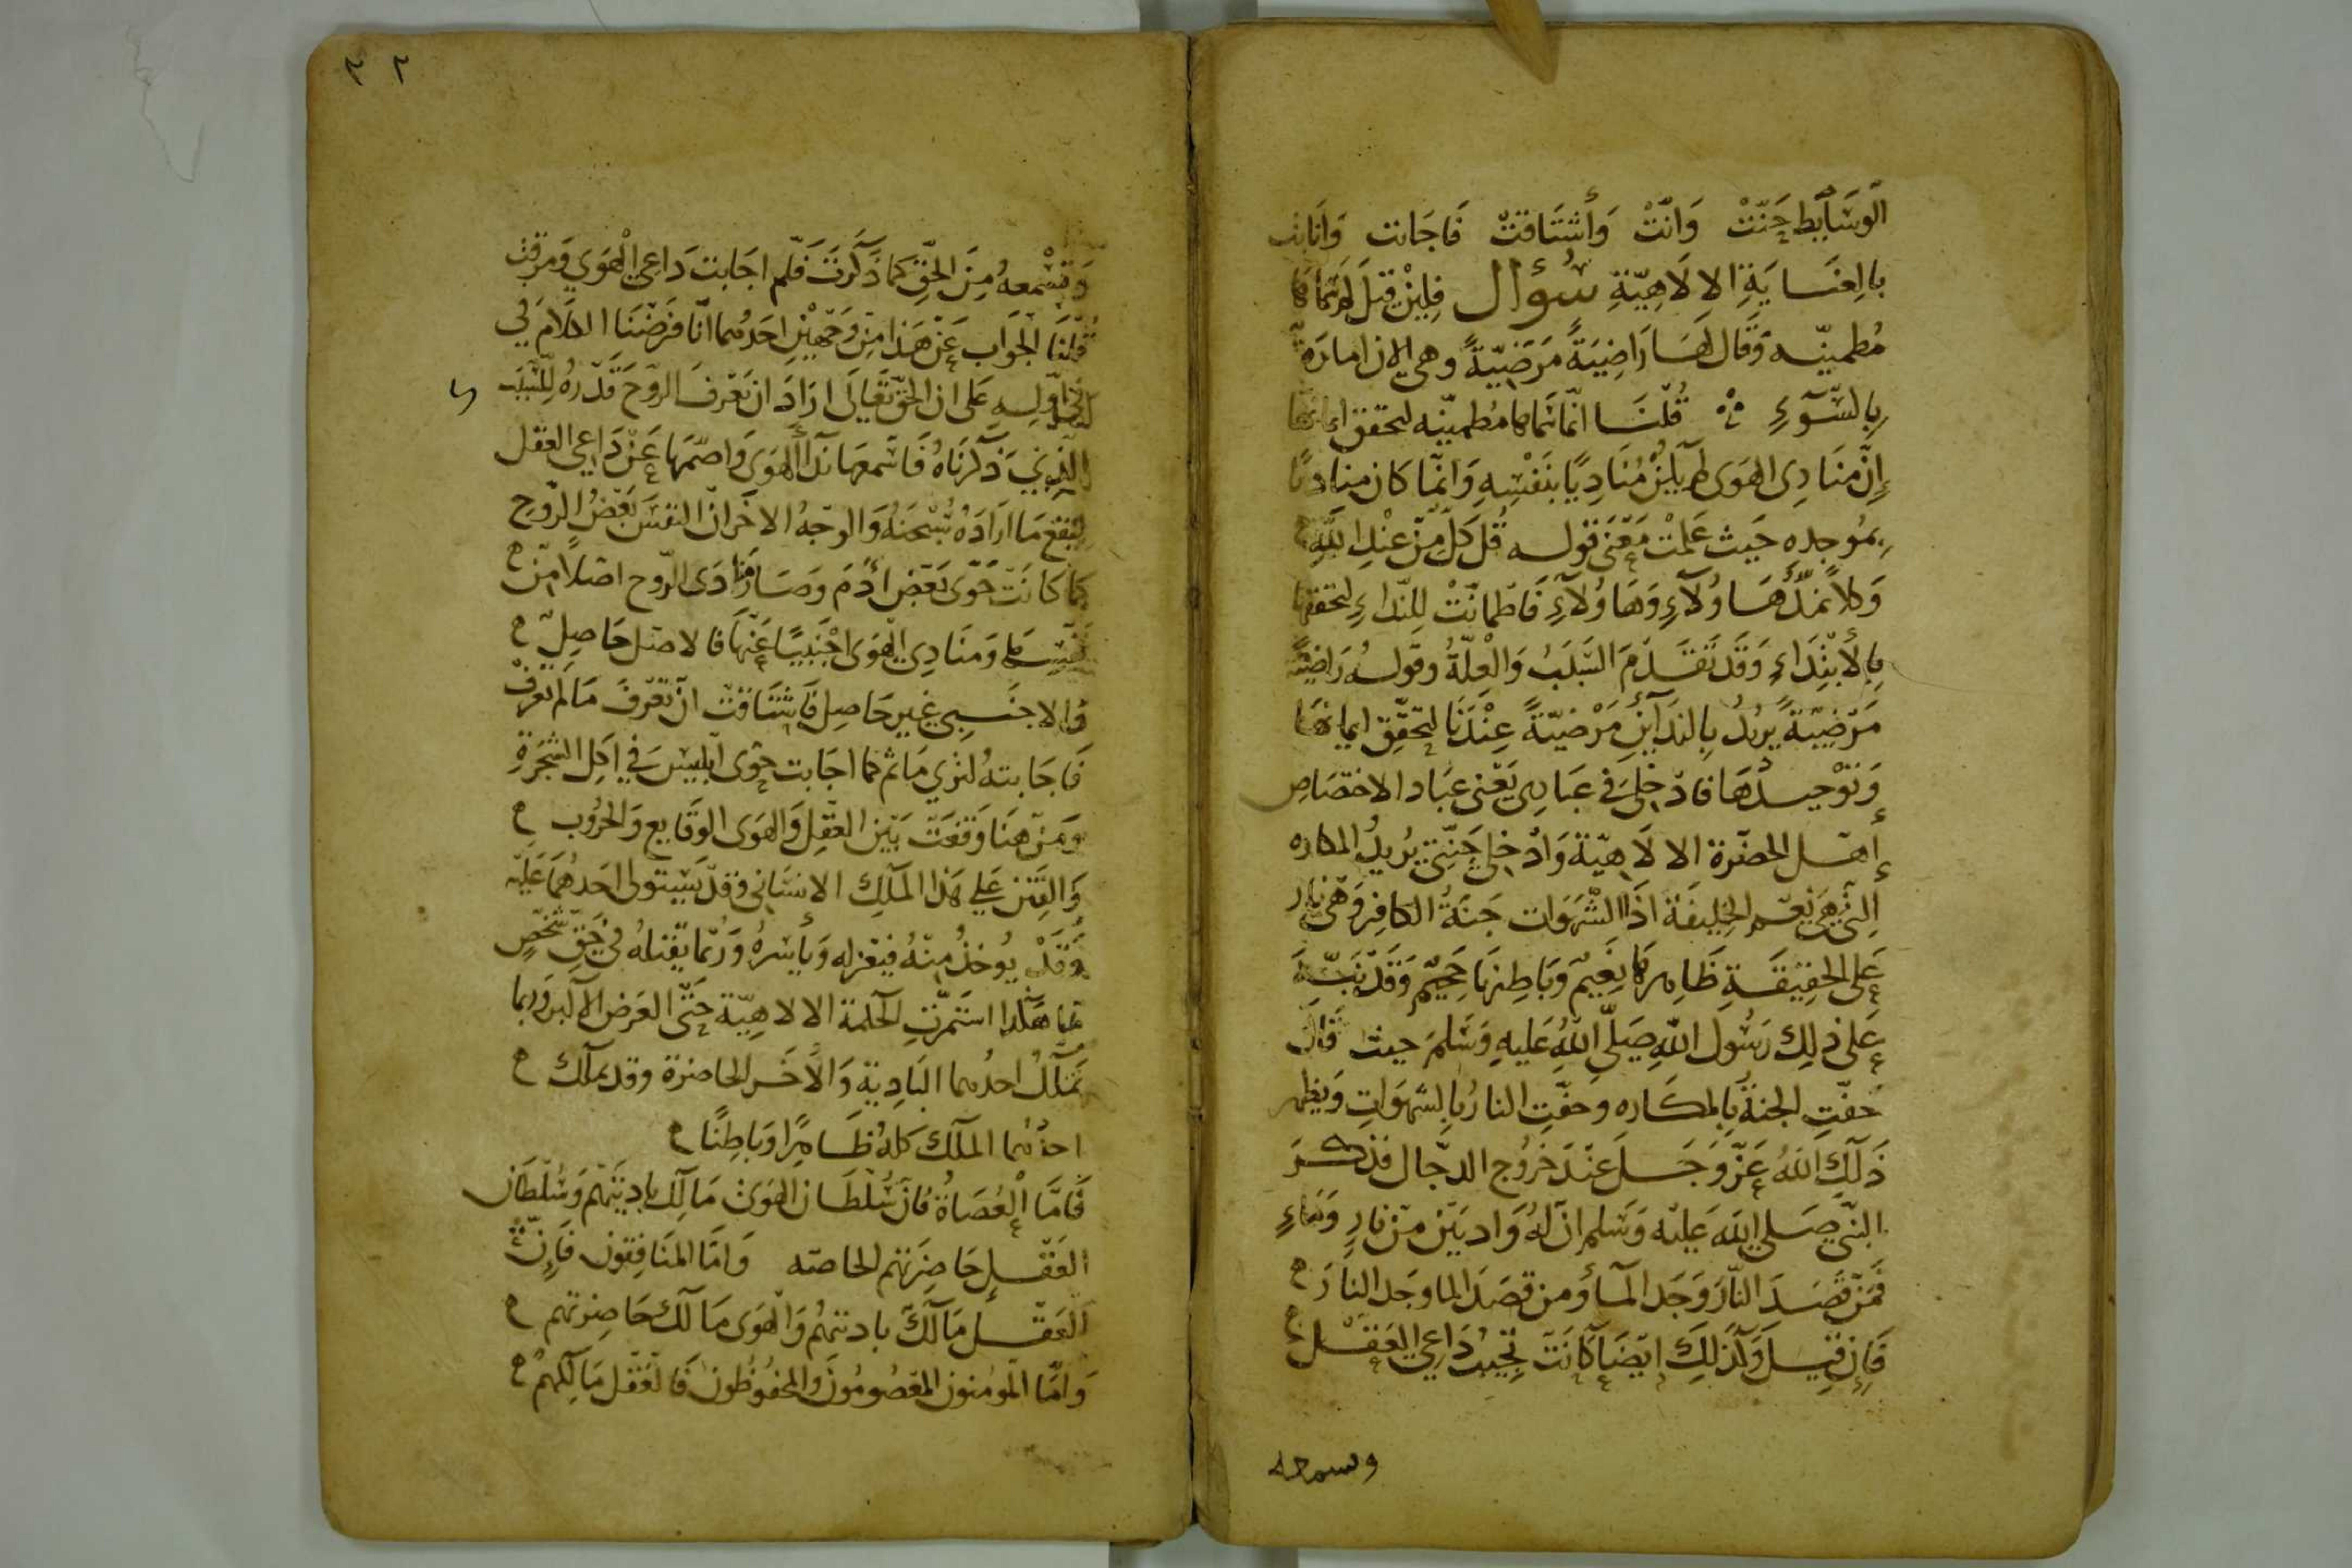 الوسَآيط حَنّتْ وَانّتْ وَأشتَاقتْ فَاجَابت وَانَابت
بالِعنَايَةِ الالَاهِيّةِ سُؤال فلِيْن قيلَ لم سَمّاهَا
مُطمينّه وَقَال لهَا رَاضِيَةً مَرَضِيّةً وهى الان امارَة
بِالسّوٓءِ قُلنَا انّما سَمّاها مُطمينّه لتحقق ايمانها
إنّ منَادِى الهَوَى لم يكنْ مُنَادِيًا بنَفْسِهِ وَانّما كان مناديًا
بمُوجدِهِ حَيث عَلمْت مَعْنَى قوله قُل كلّ مِنْ عنْدِ اللّهِ
وَكلاً نمدُّ هَاوُلآءِ وَهَاوُلآءِ فَاطْمانّتْ لِلنّداءِ لتحققها
بِالأبْتِدَاءِ وَقَدْ تَقَدّمَ السّبَبُ وَالْعِلّةُ وقولهُ رَاضِيَةً
مَرْضِيّةً يُريْدُ بِالندَآيْنِ مَرْضيّةً عِنْدَنَا لتحَقّقِ ايمانهَا
وَتوْحِيدُهَا فادْخلِى فى عبَادِى يَعْنى عبَاد الاختصَاصِ
إهل الحضْرة الالَاهِيّة وَادْخلِى جَنّتِى يُريدُ المكاره
الّتى هِىَ نعِيم الخِليفَة اذَا الشْهَوَات جَنّةُ الكَافِر وَهىَ نار
عَلى الحقِيقَةِ ظَاهِرهَا نَعِيمٌ وَبَاطِنهَا جَحِيمٌ وَقَدْ نَبّهَ
عَلى ذلِكَ رَسُول اللّهِ صَلّى اللّهُ عَليهِ وَسَلمَ حيث قَال
حُفّتِ الجنةُ بِالمكَاره وحفّتِ النارُ بِالشهوَاتِ وَيظهر
ذَلِكَ اللّهُ عَزّ وَجَل عَنْدَ خرُوج الدجّال فَذكرَ
النّبى صَلى اللّه عَليْه وَسَلم انّ لهُ وَاديَيْن مِنْ نارٍ وَمَاءٍ
فمَنْ قَصَدَ النّارَ وَجَد المَآء وَمن قصَدَ الما وجَد النارَ
فَإن قِيلَ وَلذلِكَ ايْضًا كانَتْ تجِيبُ دَاعِى العَقْل
وسمعه
٢٢
وَتسْمعهُ مِنَ الحَقّ كما ذَكَرتَ فَلم اجَابت دَاعِى الْهَوَى وَمرقت
قُلنَا الْجَوَاب عَنْ هَذا مِنْ وَجْهَيْنِ احَدُهما انّا فرَضْنَا الكَلَامَ فى
اوّلهِ عَلى ان الحقّ تَعَالَى ارَادَ ان تَعْرفَ الروّحَ قَدْرهُ لِلسّبَب
الّذى ذَكَرنَاهُ فَاسْمعهَا ندَآ الهَوَى وَاصَمّهَا عَنْ دَاعِى العَقل
ليَقعَ مَا ارَادَهُ سُبْحَنهُ وَالوجْهُ الاخَر انّ النفسَ بَعْضُ الرّوُح
كما كانَتْ حَوّى بَعْض أدَمَ وَصَارَ مُنَادَى الرّوح اصْلاً مِنْ
نَفْسِهَا وَمنَادِى الهَوَى اجْنَبِيًا عَنْهَا فالاصْل حَاصِلٌ
وَالاجنَبى غيرحَاصِل فَاشْتَاقتْ انْ تَعْرفَ مَا لم تعرفْ
فَاجَابتهُ لترى مَا ثم كما اجَابت حَوّى ابْليسَ فى اكل الشجَرةِ
وَمنْ هنَا وَقعَتْ بَيْن العَقِل وَالهوَى الوقَايع وَالحرُوب
وَالفِتَن عَلى هَذا المَلِك الانسَانى وَقدْ يَسْتولى احَدهُمَا عَليْه
وَقَدْ يُوخذُ مِنْهُ فيعْزله وَيأسِرهُ وَرُبما يقْتلهُ فى حَقّ شَخْصٍ
مّا هكذا استَمرّتِ الحكمة الالاهِيّة حَتّى العَرض الاكبر وَربما
تملكُ احدُهما البَادِية وَالاخَر الحاضرة وقد يملك
احدُهما الملك كلهُ ظَاهِرًا وَبَاطِنًا
فَامّا العُصَاةُ فانّ سُلْطَان الهوَى مَالِك بادِيَتهُم وَسُلطان
العَقْلِ حَاضِرَتهم الخاصّه وَامّا المنَافِقون فَإنّ
العَقْل مَالكُ باديتهُم وَالْهوَى مَالكُ حَاضِرتهم
وَامّا المُومنون المعْصُومُونَ وَالمحفُوظون فَالعَقل مَالِكهُمْ